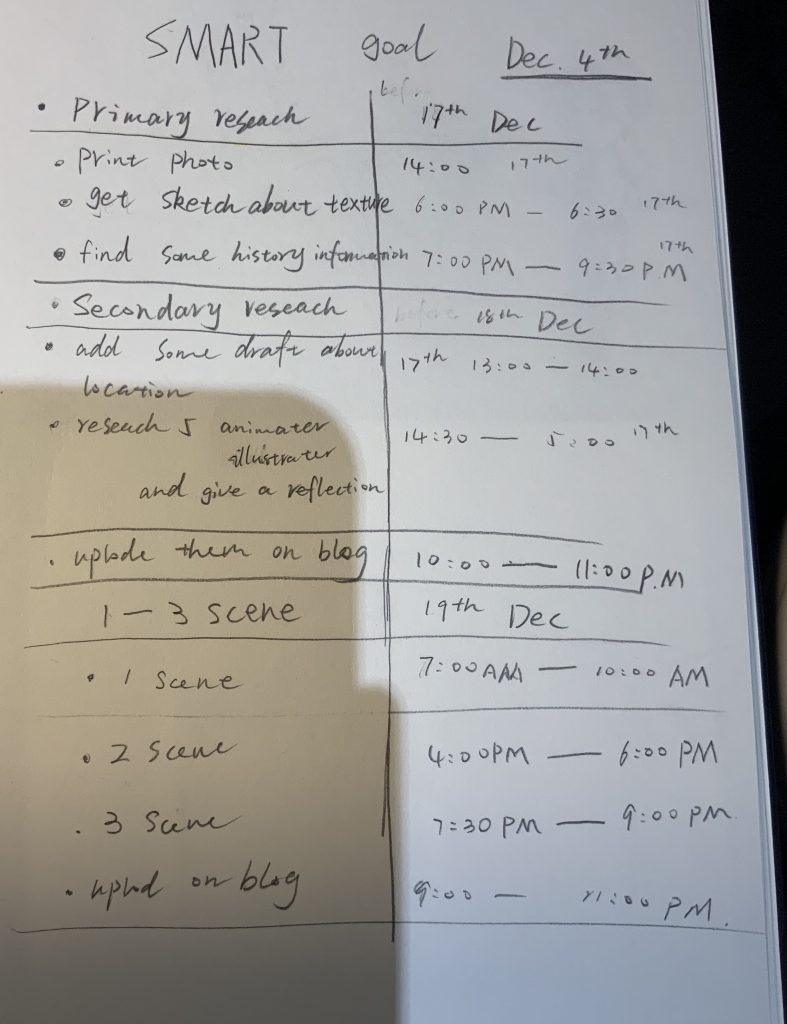 SMART goal Dec. 4th
• Primary reseach 17th Dec
• Print photo 14:00 17th
• get sketch about texture 6:00 PM — 6:30 17th
• find some history information 7:00 PM — 9:30 P.M 17th
• Secondary reseach before 18th Dec
• add some draft about 17th 13:00 — 14:00
location
• reseach 5 animater 14:30 — 5:00 17th
illustrater
and give a reflection
• uplode them on blog 10:00 — 11:00 P.M
1 — 3 scene 19th Dec
• 1 scene 7:00 AM — 10:00 AM
• 2 scene 4:00PM — 6:00 PM
• 3 scene 7:30 PM — 9:00 PM.
• on blog 9:00 — 11:00 PM.